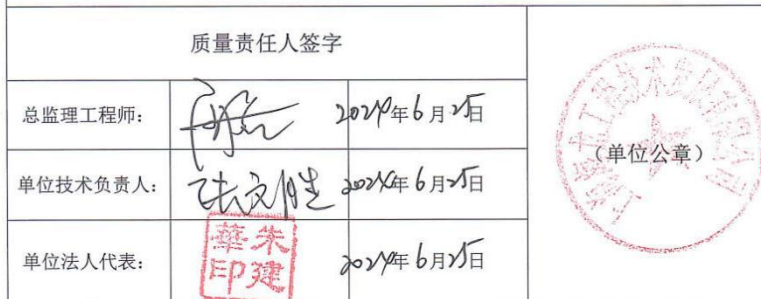 质量责任人签字
总监理工程师: 2024年6月25日
单位技术负责人: 张文胜 2024年6月25日
(单位公章)
单位法人代表: 朱建華印 2024年6月25日